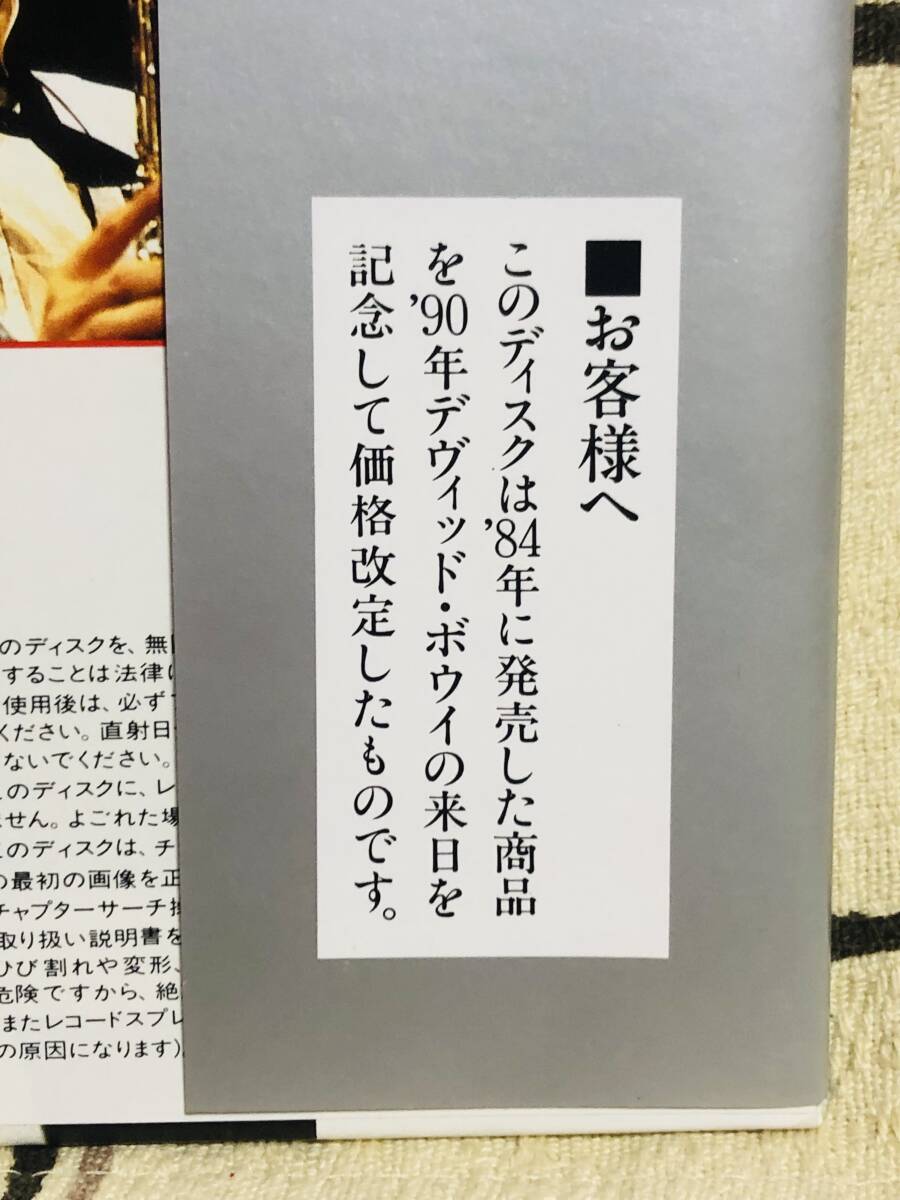 ■お客様へ
このディスクは'84年に発売した商品
を'90年デヴィッド・ボウイの来日を
記念して価格改定したものです。
のディスクを、無
することは法律に
使用後は、必ず
ください。直射日
ないでください。
このディスクに、レ
ません。よごれた場
このディスクは、チ
の最初の画像を正
チャプターサーチ操
取り扱い説明書を
ひび割れや変形、
危険ですから、絶
またレコードスプレ
の原因になります)